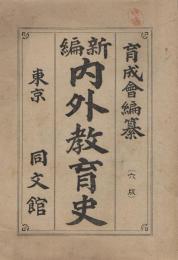 育成會編纂
（六版）
新編
内外教育史
東京
同文館